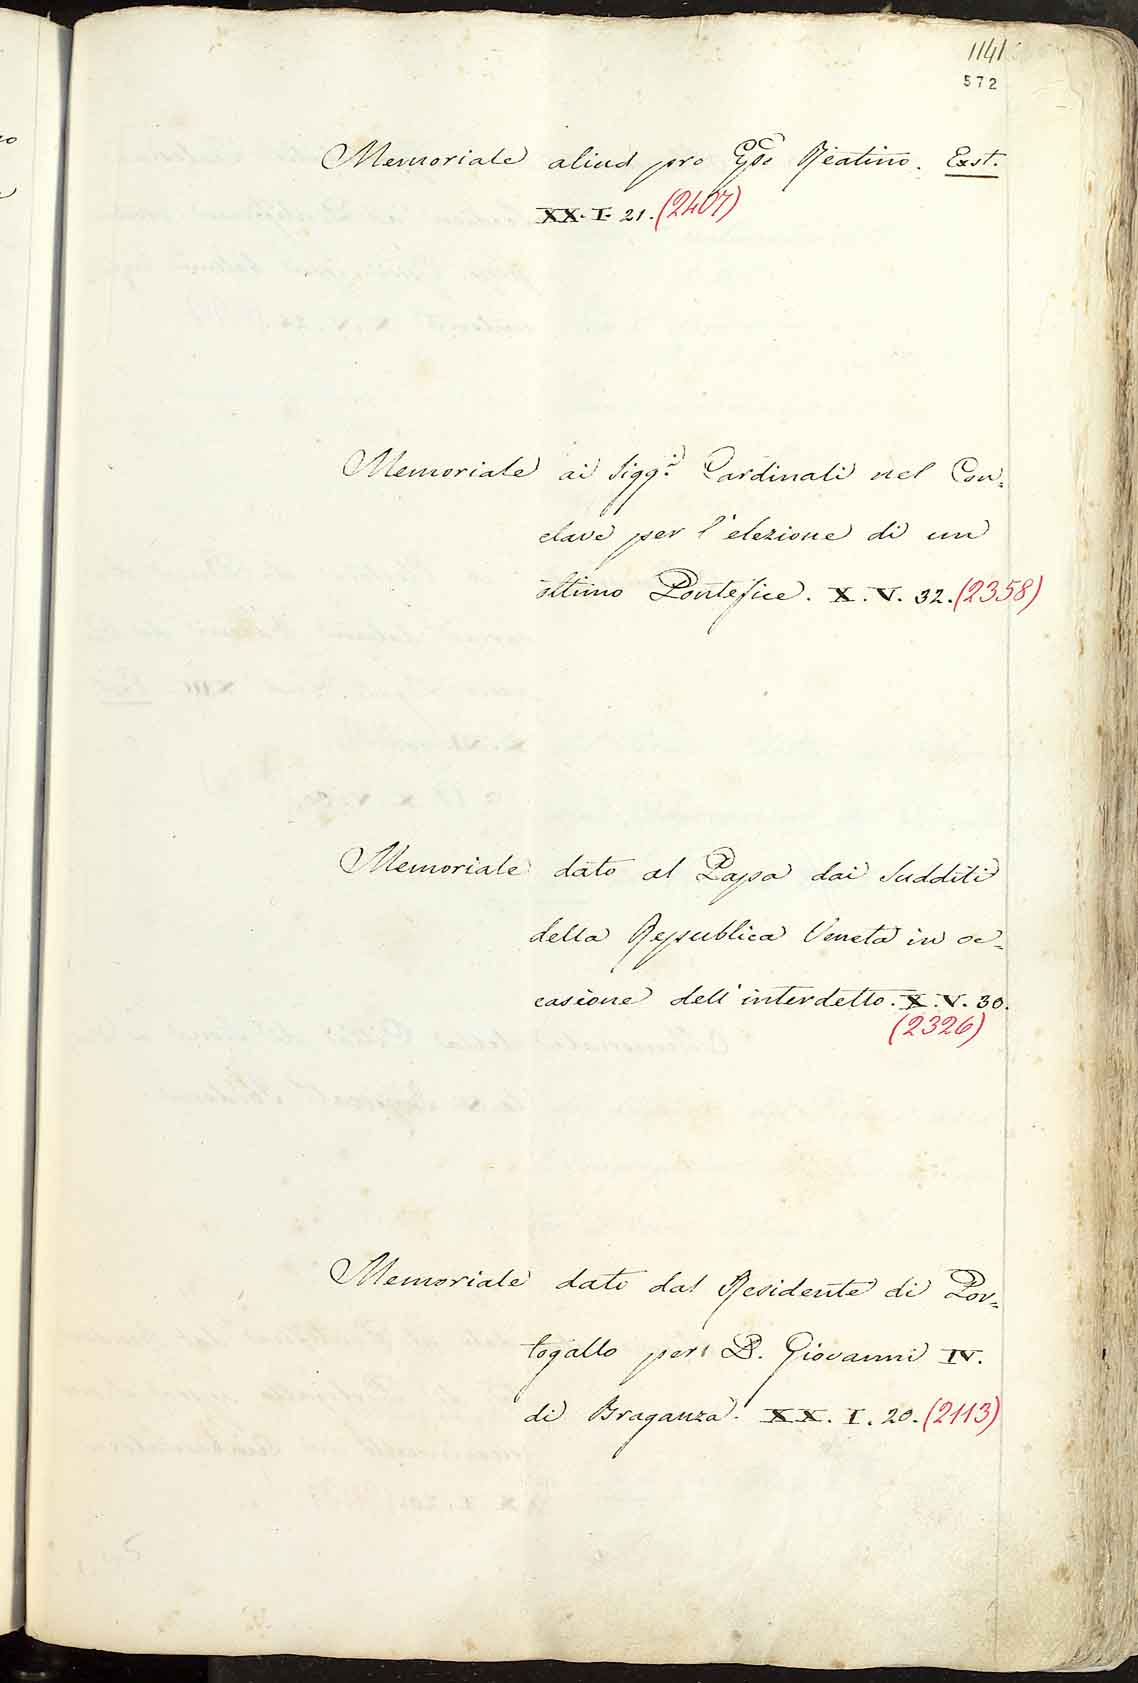 1141
572
Memoriale aliud pro Epõ Reatino. Exst.
XX. I. 21. (2407)
Memoriale ai Sigg.i Cardinali nel Con-
clave per l'elezione di un
ottimo Pontefice. X. V. 32. (2358)
Memoriale dato al Papa dai Sudditi
della Republica Veneta in oc-
casione dell'interdetto. X. V. 30.
(2326)
Memoriale dato dal Residente di Por-
togallo per D. Giovanni IV.
di Braganza. XX. I. 20. (2113)